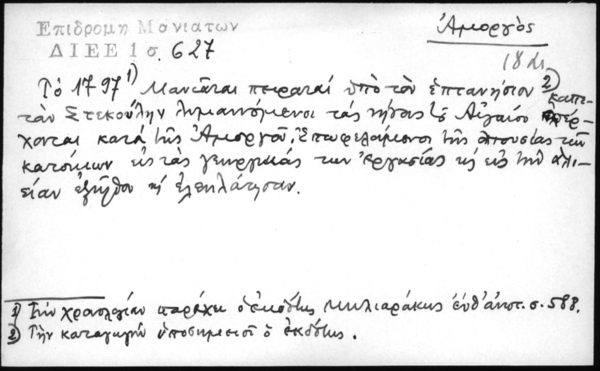 Επιδρομη Μανιατων
Ἀμοργὸς
ΔΙΕΕ 1 σ. 627
18
Τὸ 1797 1) Μανιᾶται πειραταὶ ὑπὸ τὸν ἑπτανήσιον 2)
τὸν Στεκούλην λυμαινόμενοι τὰς νήσους τοῦ Αἰγαίου κατέρ-
χονται κατὰ τῆς Ἀμοργοῦ, ἐπωφελούμενοι τῆς ἀπουσίας τῶν
κατοίκων εἰς τὰς γεωργικάς των ἐργασίας κ εἰς τὴν ἁλι-
είαν ἐξῆλθον κ ἐλεηλάτησαν.
1) Τὴν χρονολογίαν παρέχει ὁ ἐκδότης Μηλιαράκης ἐνθ' ἀνωτ. σ. 588.
2) Τὴν καταγωγὴν ὑποσημειοῖ ὁ ἐκδότης.